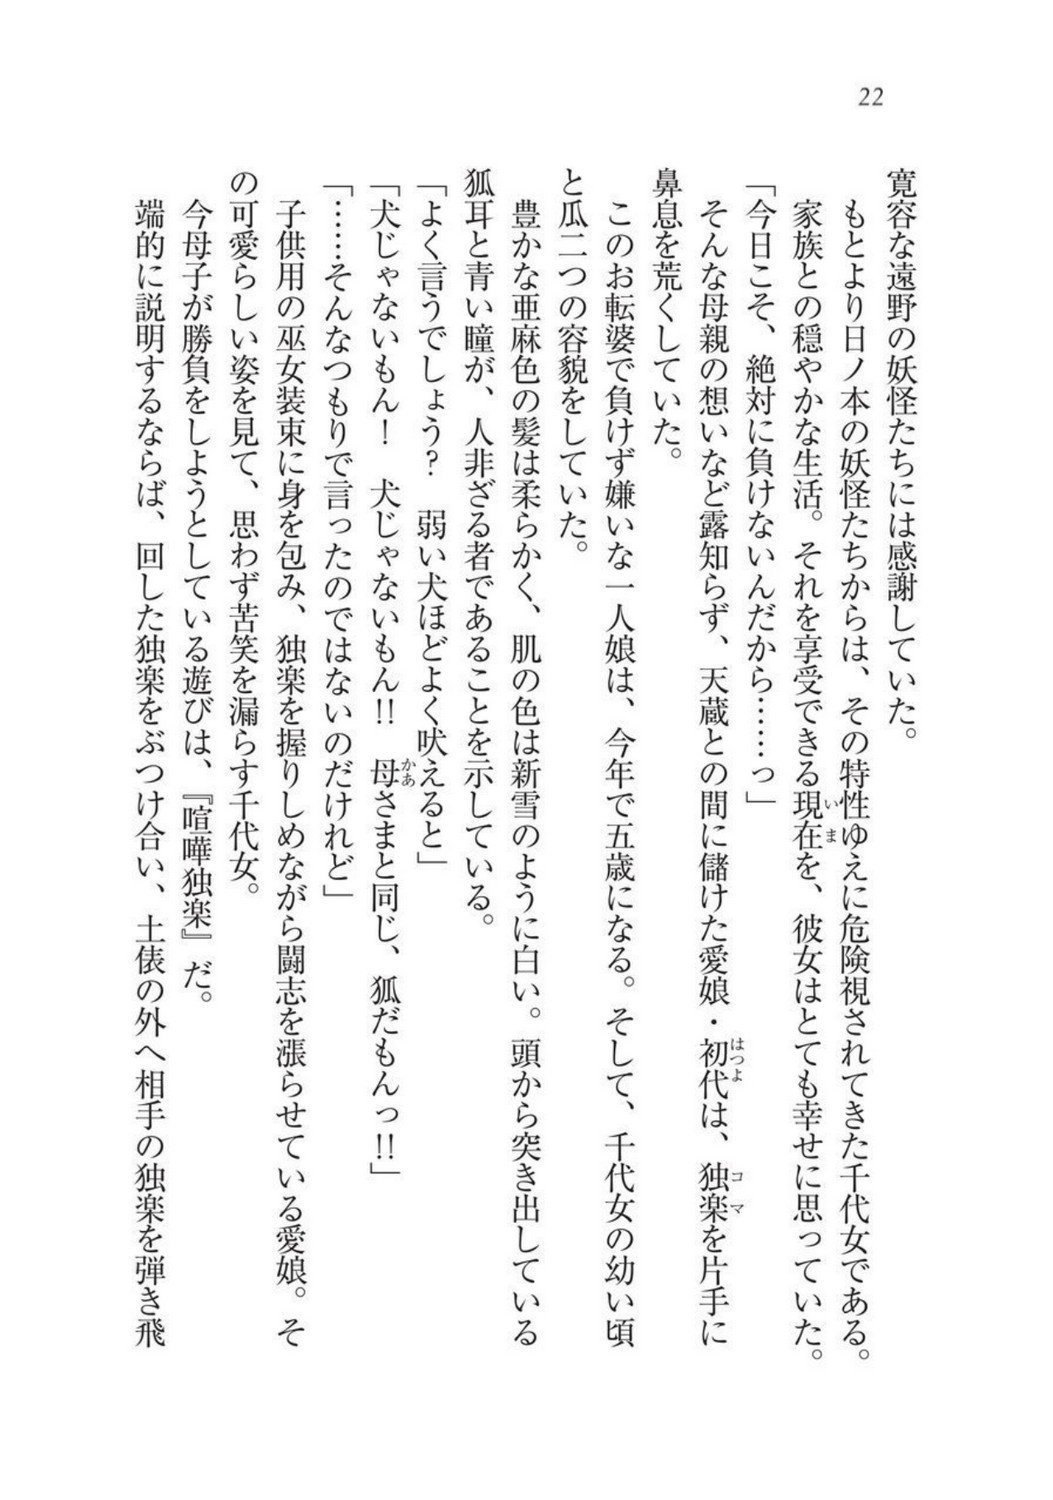 22
寛容な遠野の妖怪たちには感謝していた。
もとより日ノ本の妖怪たちからは、その特性ゆえに危険視されてきた千代女である。
家族との穏やかな生活。それを享受できる現在を、彼女はとても幸せに思っていた。
いま
「今日こそ、絶対に負けないんだから……っ」
そんな母親の想いなど露知らず、天蔵との間に儲けた愛娘・初代は、独楽を片手に
はつよ
コマ
鼻息を荒くしていた。
このお転婆で負けず嫌いな一人娘は、今年で五歳になる。そして、千代女の幼い頃
と瓜二つの容貌をしていた。
豊かな亜麻色の髪は柔らかく、肌の色は新雪のように白い。頭から突き出している
狐耳と青い瞳が、人非ざる者であることを示している。
「よく言うでしょう？　弱い犬ほどよく吠えると」
「犬じゃないもん！　犬じゃないもん!!　母さまと同じ、狐だもんっ!!」
かあ
「……そんなつもりで言ったのではないのだけれど」
子供用の巫女装束に身を包み、独楽を握りしめながら闘志を漲らせている愛娘。そ
の可愛らしい姿を見て、思わず苦笑を漏らす千代女。
今母子が勝負をしようとしている遊びは、『喧嘩独楽』だ。
端的に説明するならば、回した独楽をぶつけ合い、土俵の外へ相手の独楽を弾き飛